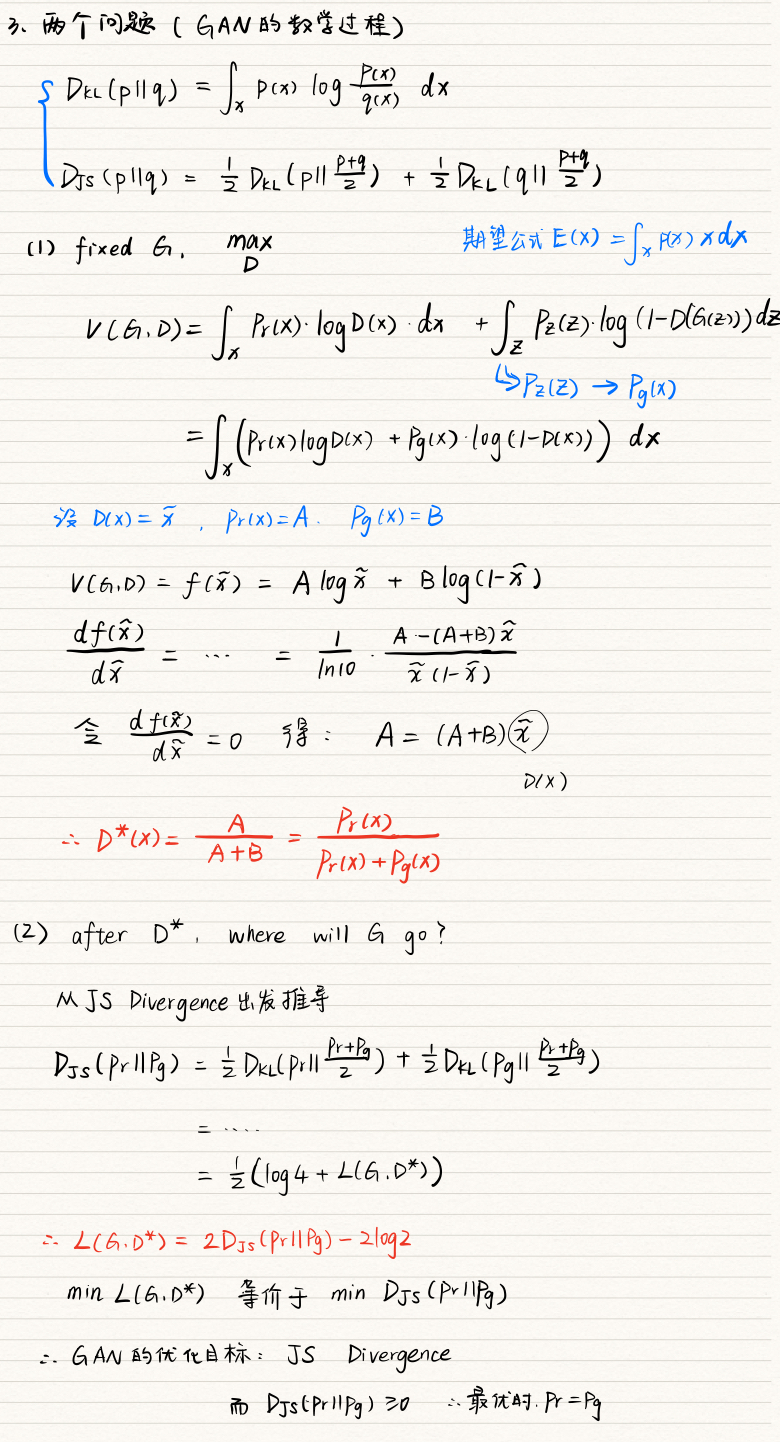 3、两个问题 ( GAN的数学过程)
D_KL(p||q) = ∫_x p(x) log p(x)/q(x) dx
D_JS(p||q) = 1/2 D_KL(p|| (p+q)/2) + 1/2 D_KL(q|| (p+q)/2)
(1) fixed G, max_D 期望公式 E(x) = ∫_x p(x) x dx
V(G,D) = ∫_x Pr(x)·logD(x)·dx + ∫_z Pz(z)·log(1-D(G(z)))dz
↳Pz(z) → Pg(x)
= ∫_x (Pr(x)logD(x) + Pg(x)·log(1-D(x))) dx
设 D(x) = x̃ , Pr(x)=A. Pg(x)=B
V(G,D) = f(x̃) = A log x̃ + B log(1-x̃)
df(x̃)/dx̃ = ... = 1/ln10 · (A-(A+B)x̃)/(x̃(1-x̃))
令 df(x̃)/dx̃ = 0 得: A = (A+B)x̃
D(x)
∴ D*(x) = A/(A+B) = Pr(x)/(Pr(x)+Pg(x))
(2) after D*, where will G go?
从JS Divergence出发推导
D_JS(Pr||Pg) = 1/2 D_KL(Pr|| (Pr+Pg)/2) + 1/2 D_KL(Pg|| (Pr+Pg)/2)
= ....
= 1/2(log4 + L(G,D*))
∴ L(G,D*) = 2D_JS(Pr||Pg) - 2log2
min L(G,D*) 等价于 min D_JS(Pr||Pg)
∴ GAN的优化目标: JS Divergence
而 D_JS(Pr||Pg) ≥0 ∴最优时. Pr=Pg